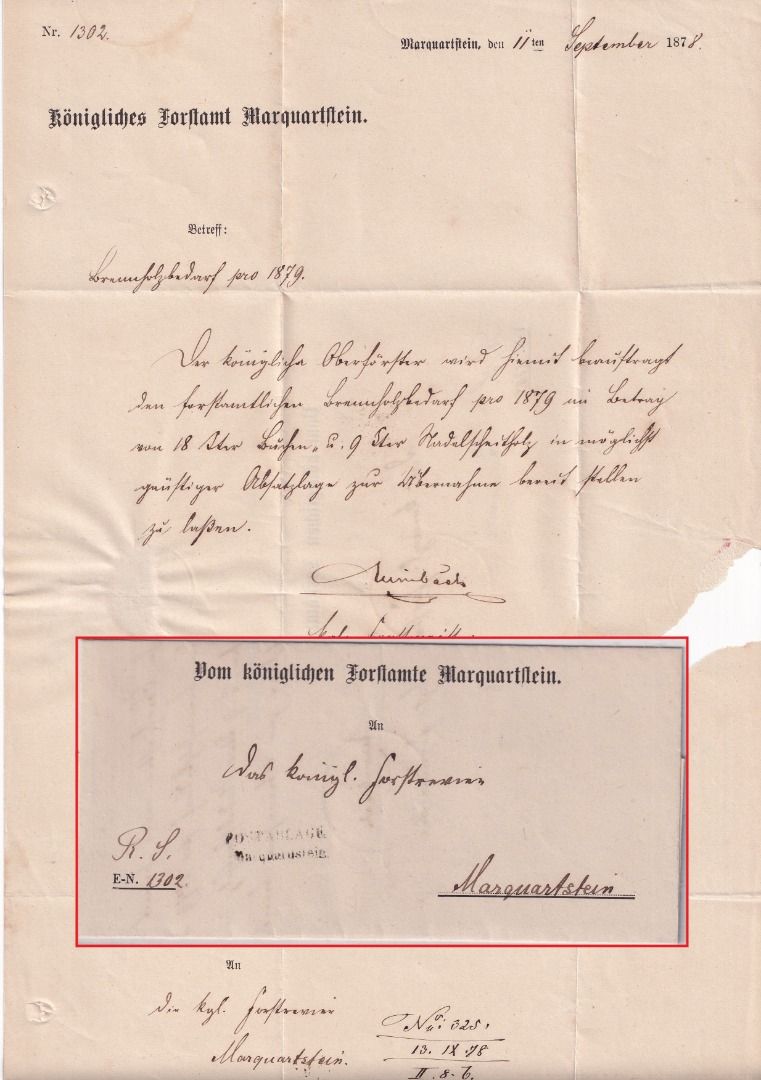 Nr. 1302.
Marquartstein, den 11ten September 1878.
Königliches Forstamt Marquartstein.
Betreff:
Brennholzbedarf pro 1879.
Der königliche Oberförster wird hiemit beauftragt
den forstamtlichen Brennholzbedarf pro 1879 im Betrag
von 18 Ster Buchen- u. 9 Ster Nadelscheitholz in möglichst
günstiger Absatzlage zur Übernahme bereit stellen
zu laßen.
Vom königlichen Forstamte Marquartstein.
An
das königl. Forstrevier
R. S.
POSTABLAGE
Marquardstein.
E-N. 1302.
Marquartstein
An
die kgl. Forstrevier
Marquartstein.
No: 325.
13. IX. 78
II. 8. 6.